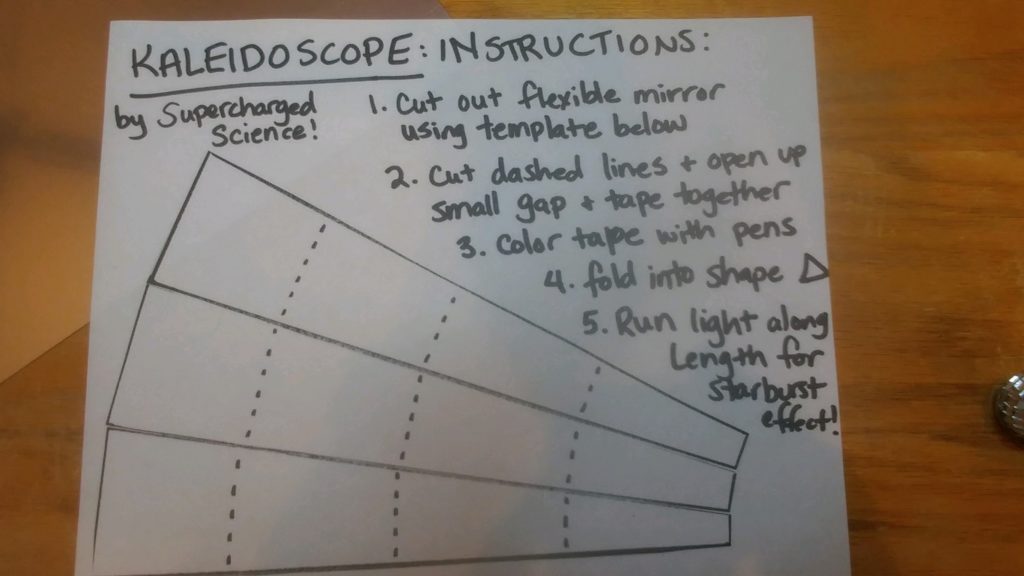 KALEIDOSCOPE: INSTRUCTIONS:
by Supercharged
Science!
1. Cut out flexible mirror
using template below
2. Cut dashed lines + open up
small gap + tape together
3. Color tape with pens
4. fold into shape
5. Run light along
Length for
starburst
effect!